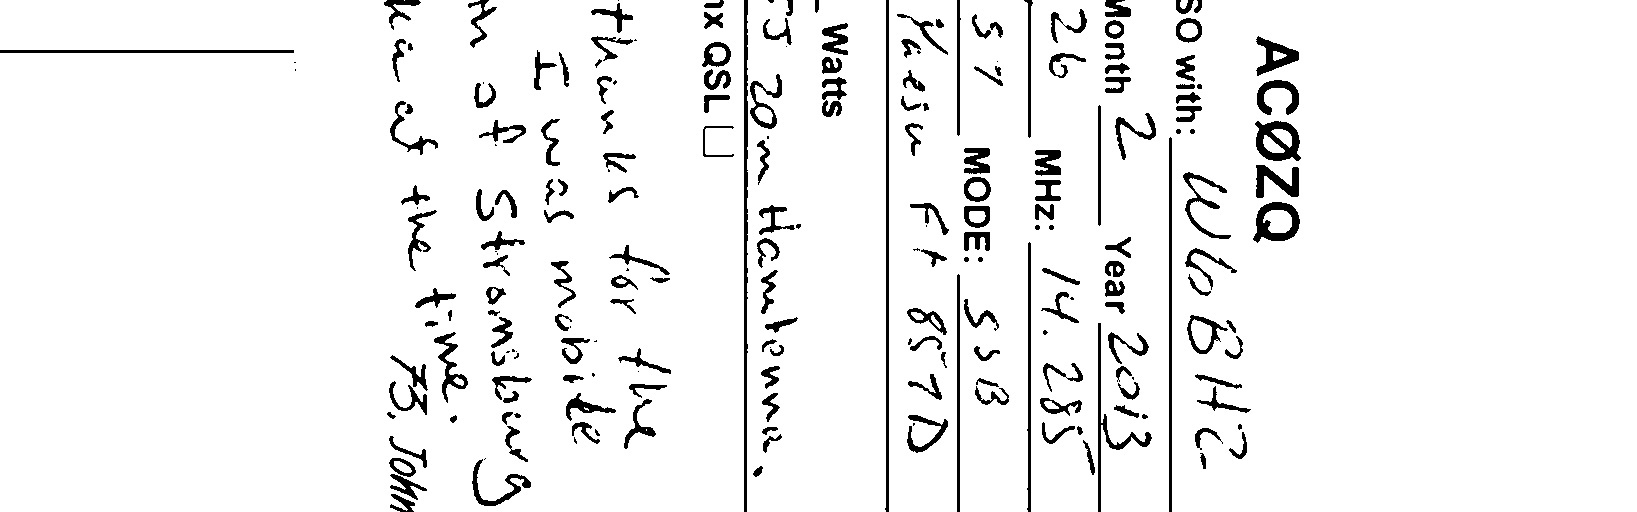 ACØZQ
SO with: W6BHZ
Month 2 Year 2013
26 MHz: 14.285
57 MODE: SSB
Yaesu Ft 857D
Watts
20m Hamtenna.
nx QSL
thanks for the
I was mobile
of Stromsburg
at the time.
73, John